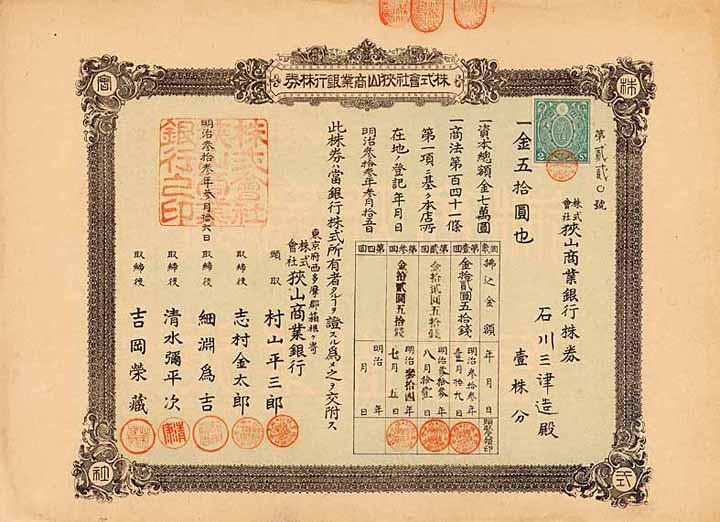 株式會社狹山商業銀行株券
株
式
會
社
第貳貳〇號
株式會社 狹山商業銀行株券
石川三津造殿
壹株分
一金五拾圓也
2 Sn
一資本總額金七萬圓
一商法第百四十一條
第一項ニ基ク本店所
在地ノ登記年月日
明治參拾參年參月拾五日
回數 拂込金額 年月日
第壹回 金拾貳圓五拾錢 明治參拾參年壹月拾九日
第貳回 金拾貳圓五拾錢 明治參拾參年八月拾壹日
第參回 金拾貳圓五拾錢 明治參拾四年七月五日
第四回 明治 年 月 日
此株券ハ當銀行株式所有者タルヿヲ證スル爲メ之ヲ交附ス
東京府西多摩郡箱根ヶ㟢
株式會社 狹山商業銀行
明治參拾參年參月拾六日
株式會社
狹山商業
銀行之印
頭取 村山平三郎
取締役 志村金太郎
取締役 細淵爲吉
取締役 清水彌平次
取締役 吉岡榮藏